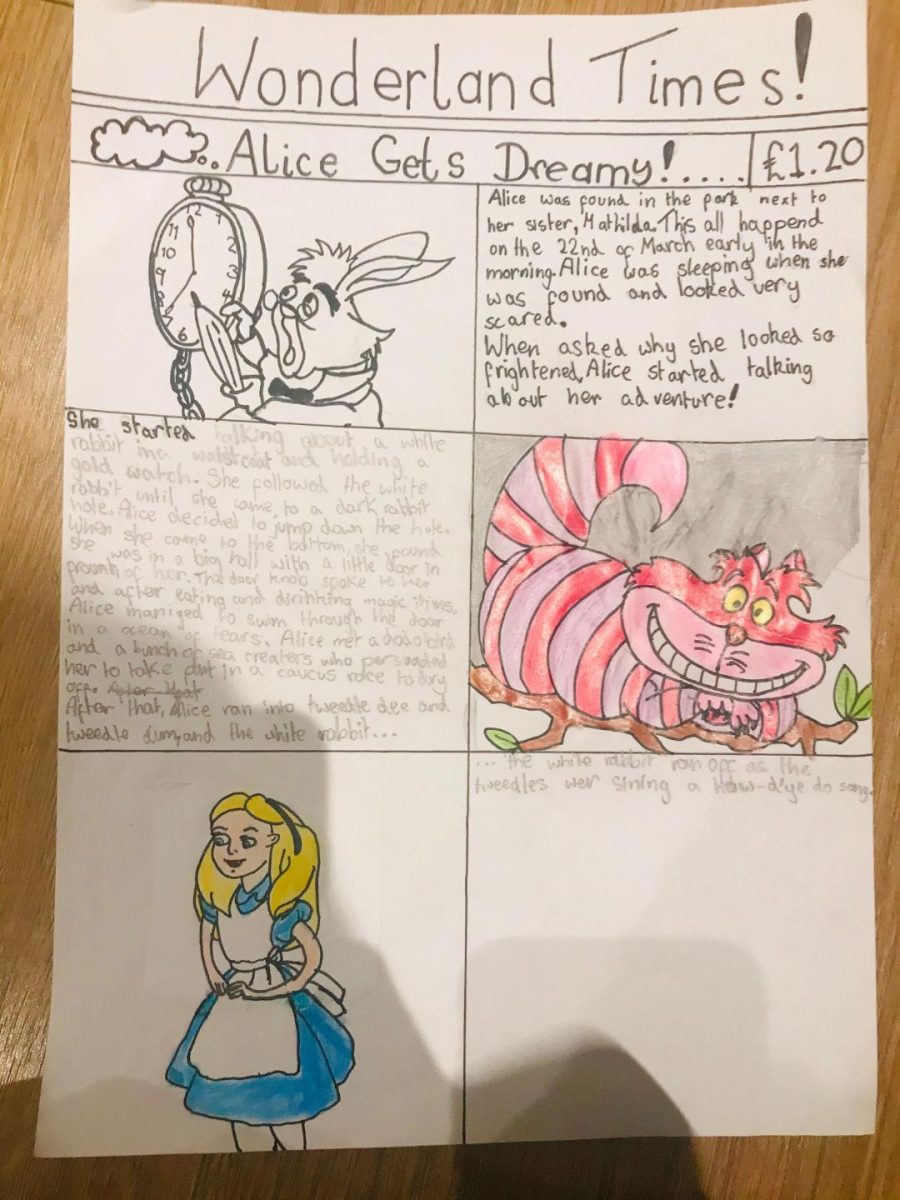 Wonderland Times!
..Alice Gets Dreamy!....
£1.20
12
1
2
3
4
6
8
9
10
11
Alice was found in the park next to
her sister, Mathilda. This all happend
on the 22nd of March early in the
morning. Alice was sleeping when she
was found and looked very
scared.
When asked why she looked so
frightened, Alice started talking
about her adventure!
She started talking about a white
rabbit in a and holding a
gold watch. She followed the white
rabbit until she came to a dark rabbit
hole. Alice decided to jump down the hole.
When she come to the bottom, she found
she was in a big hall with a little door in
of her. The door knob spoke to her
and after eating and drinking magic items,
Alice maniged to swim through the door
in a ocean of tears. Alice met a dodo bird
and a bunch of sea creaters who persuaded
her to take part in a caucus race to dry
off. After that
After that, Alice ran into tweedle dee and
tweedle dum, and the white rabbit...
... the white rabbit ran off as the
tweedles wer sining a how-d'ye do song.